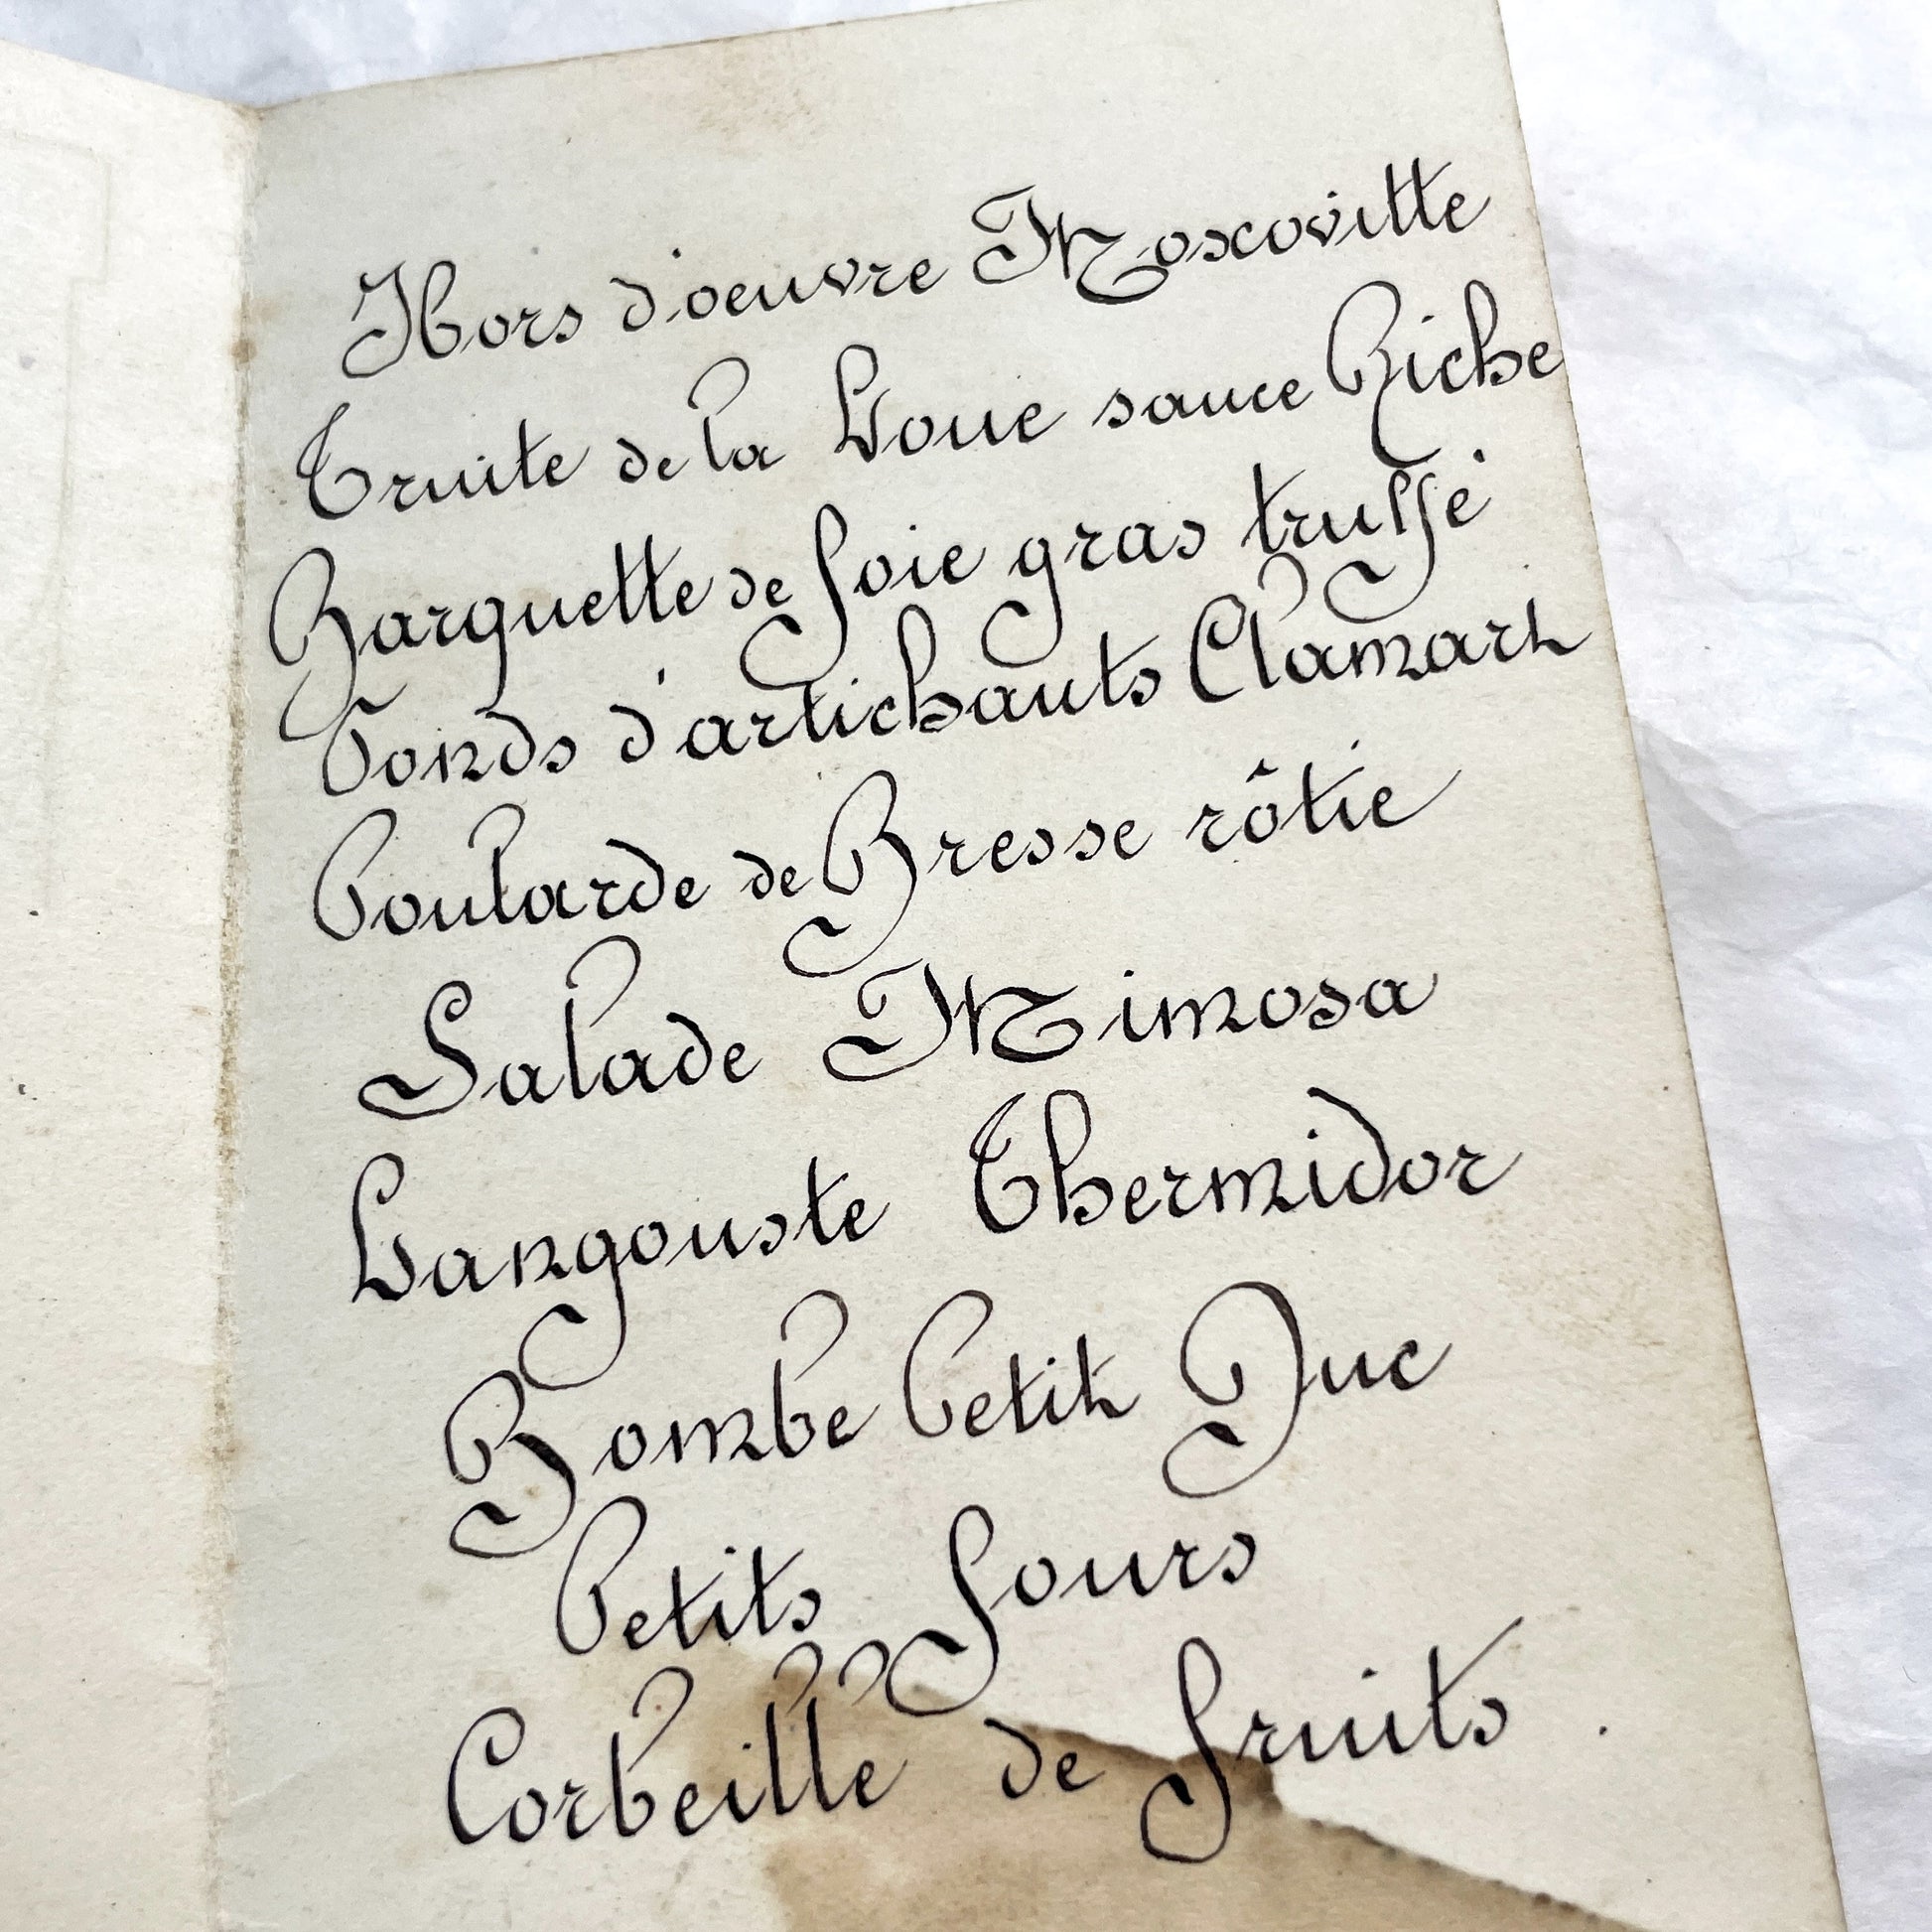 Hors d'oeuvre Moscovitte
Truite de la Loue sauce Riche
Barquette de foie gras truffé
Fonds d'artichauts Clamart
Poularde de Bresse rôtie
Salade Mimosa
Langouste Thermidor
Bombe Petit Duc
Petits fours
Corbeille de fruits.